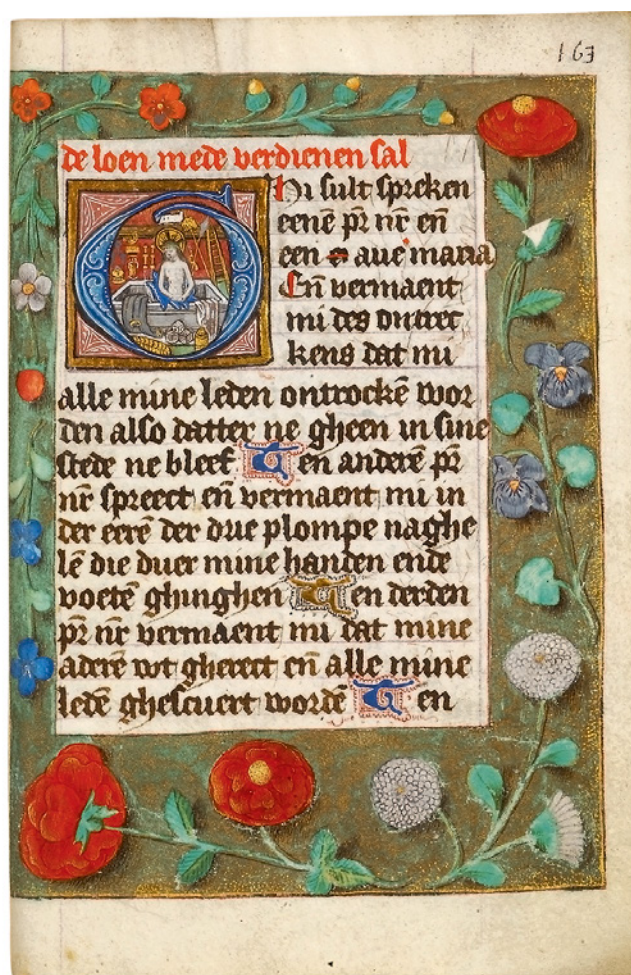 163
de loen mede verdienen sal
Ghi sult spreken
eenē pr̄ nr̄ eñ
een aue maria
Eñ vermaent
mi des ontrec
kens dat mi
alle mine leden ontrockē wor
den also datter ne gheen in sine
stede ne bleef Ten anderē pr̄
nr̄ spreect eñ vermaent mi in
der eerē der drie plompe naghe
lē die duer mine handen ende
voetē ghinghen Ten derden
pr̄ nr̄ vermaent mi dat mine
aderē wt gherect eñ alle mine
ledē ghescuert wordē Ten